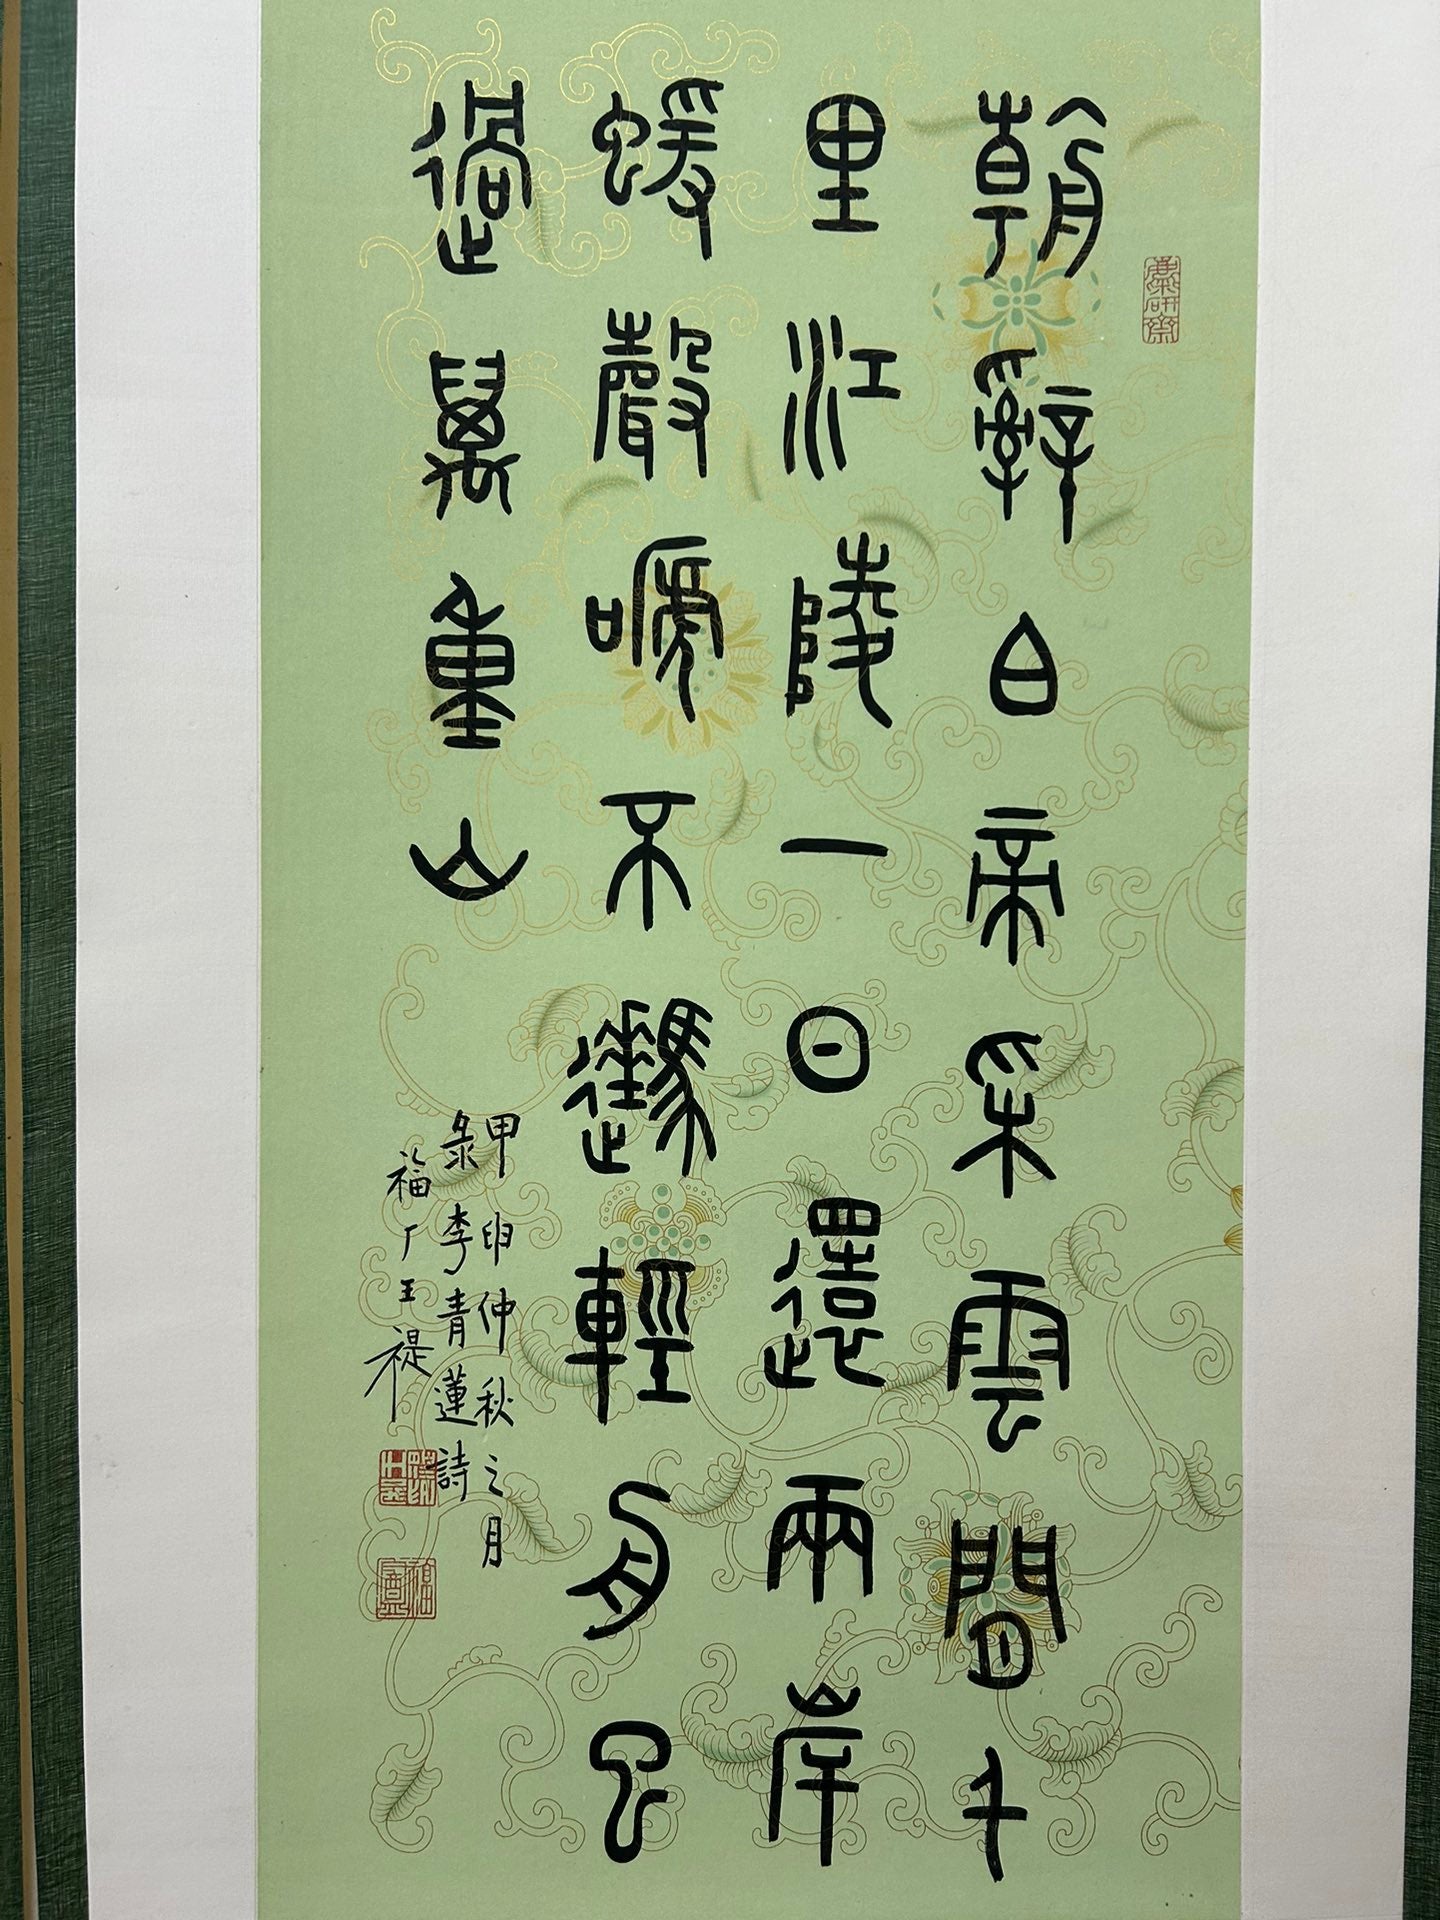 朝辭白帝采雲間千
里江陵一日還兩岸
蝯聲嗁不住輕舟已
過萬重山
甲申仲秋之月
彔李青蓮詩
福厂王禔
麋研齋
福厂